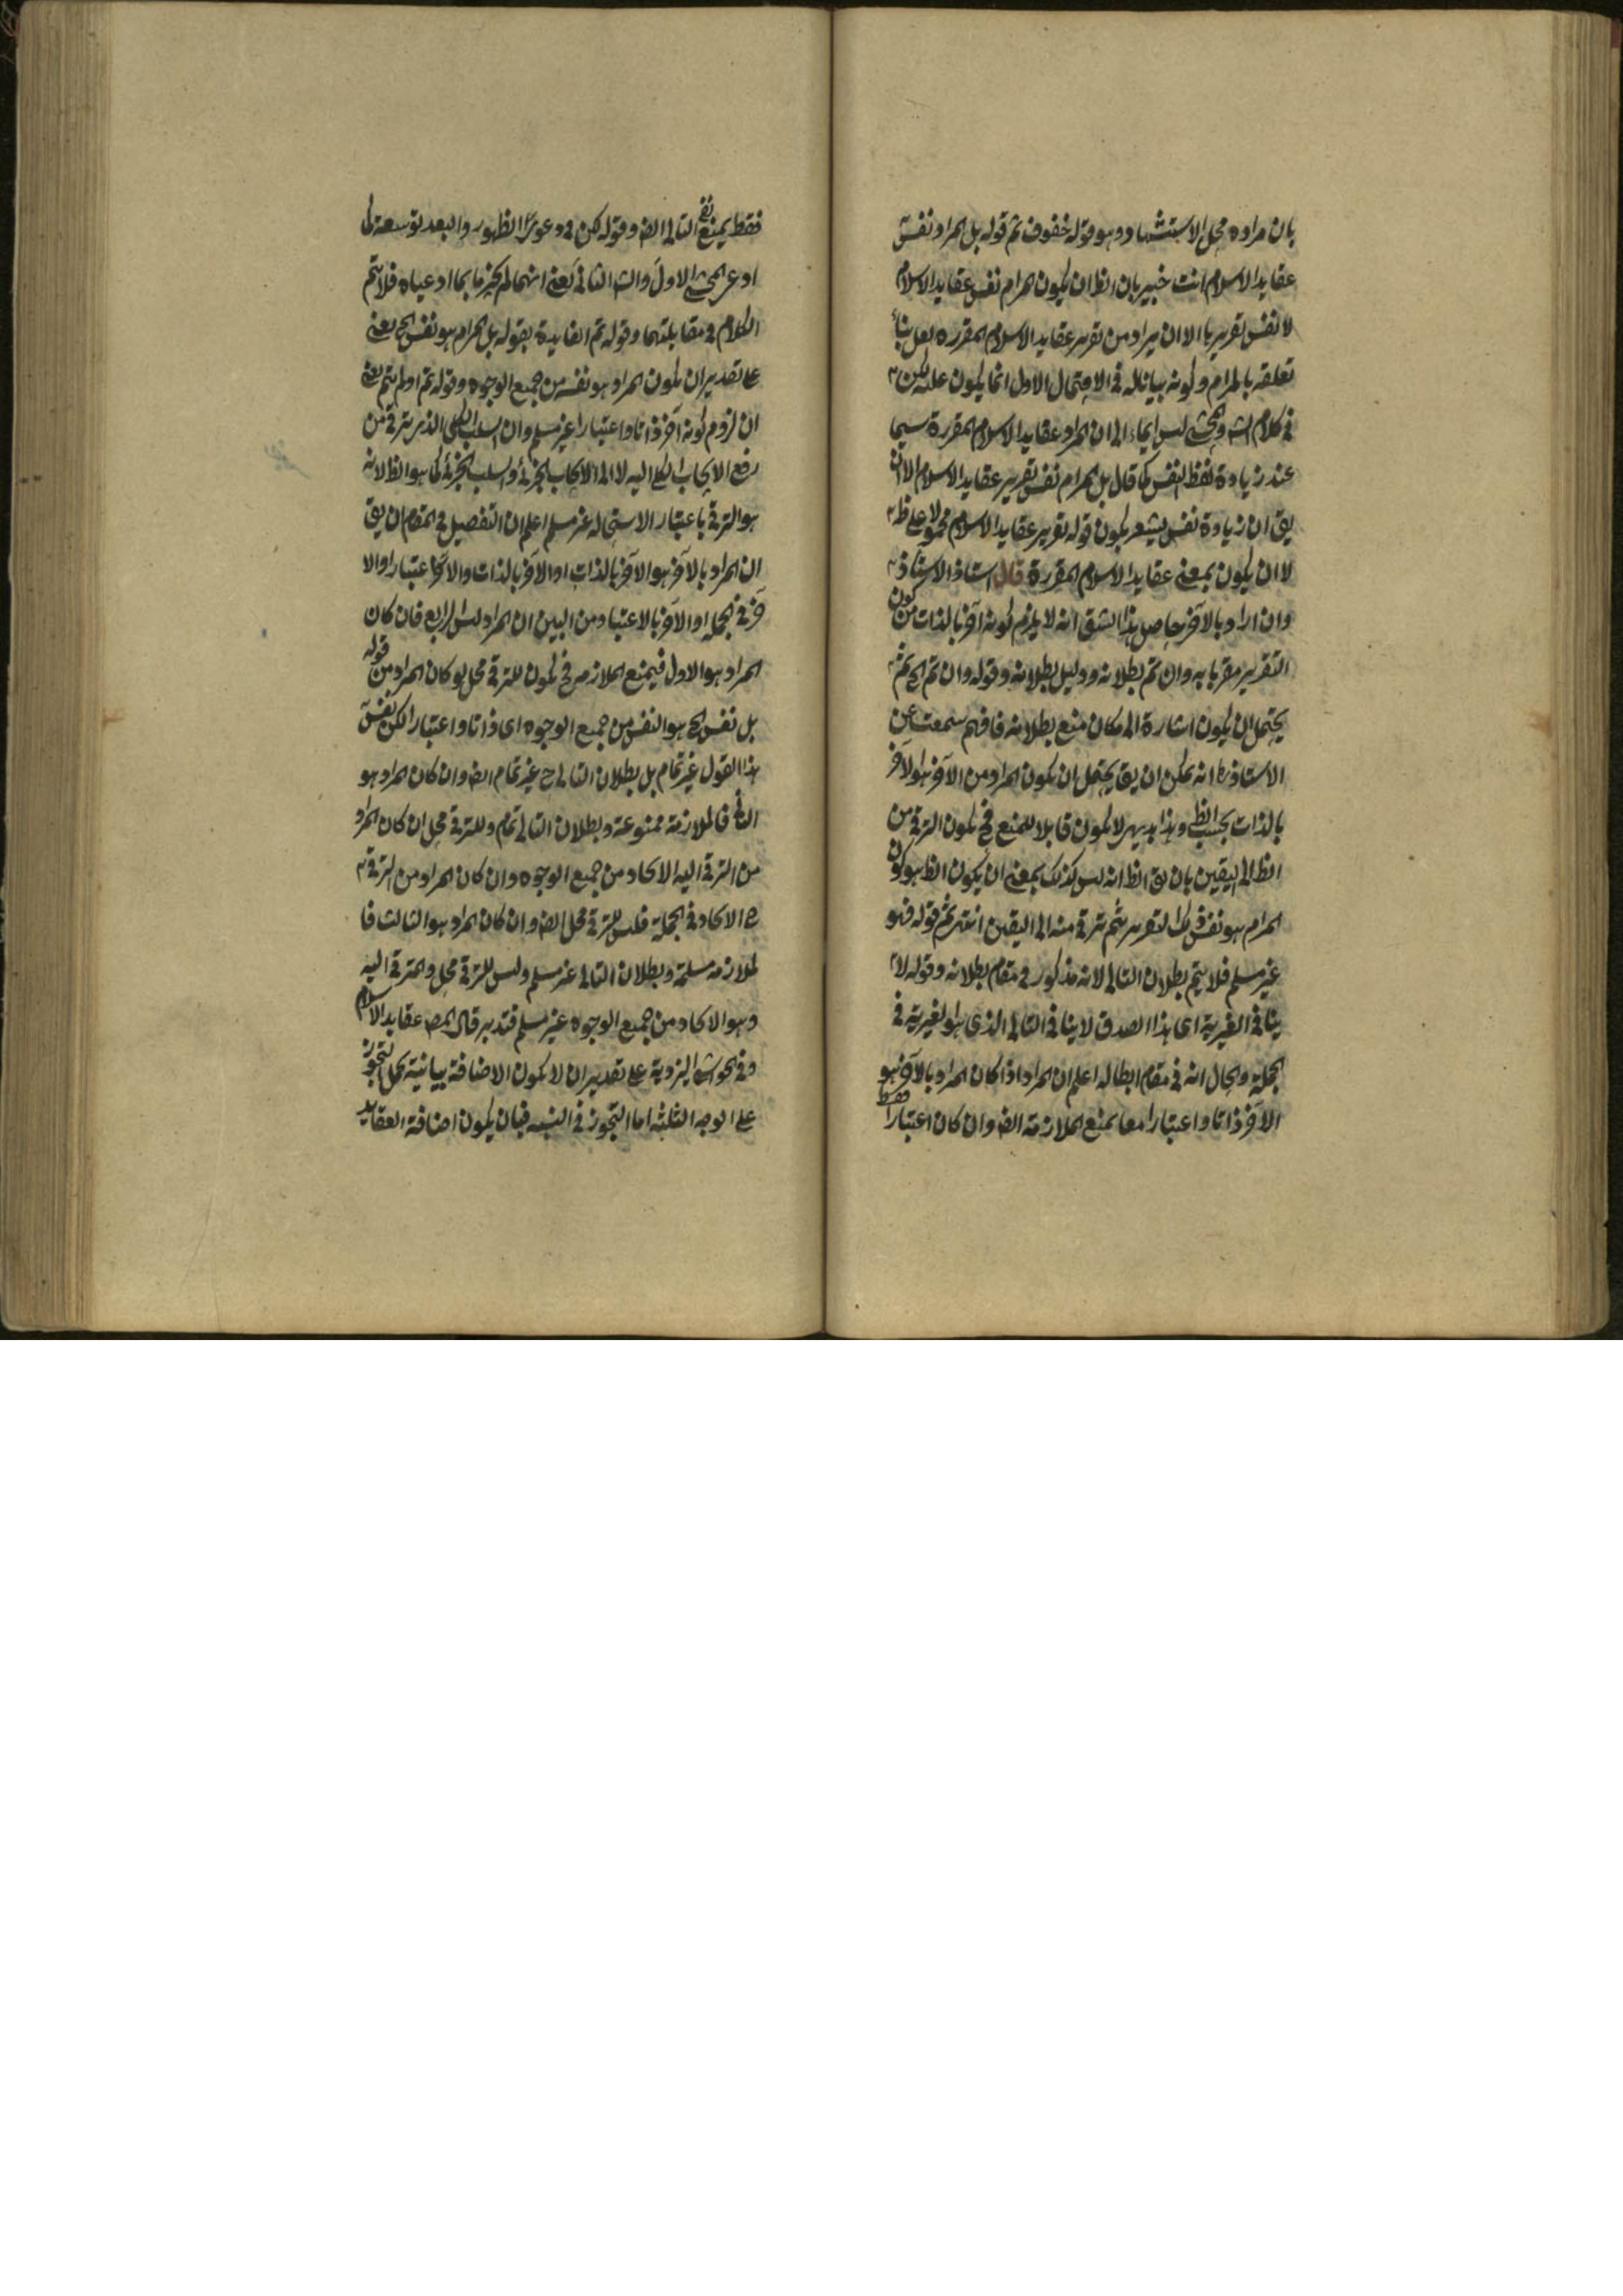 بان مراده محل الاستشهاد وهو قوله خفوف ثم قوله بل المراد نفس
عقايد الاسلام انت خبير بان الظ ان يكون المرام نفس عقايد الاسلام
لا نفس تقريرها الا ان يراد من تقرير عقايد الاسلام المقررة لعل بناء
تعلقه بالمرام وكونه بيانا له في الاحتمال الاول انما يكون علته لكن
في كلام الشه والمحشي ليس ايماء الى ان المراد عقايد الاسلام المقررة سيما
عند زيادة لفظ النفس كما قال بل المرام نفس تقرير عقايد الاسلام الا ان
يق ان زيادة نفس يشعر بكون قوله تقرير عقايد الاسلام محمولا على ظ
لا ان يكون بمعنى عقايد الاسلام المقررة قال استاذ الاستاذ
وان اراد بالآخر حاصل هذا الشق انه لا يلزم كونه آخر بالذات من كون
التقرير مقربا به وان تم بطلانه ودليل بطلانه وقوله وان تم الخ ثم
يحتمل ان يكون اشارة الى مكان منع بطلانه فافهم سمعت عن
الاستاذ انه يمكن ان يق يحتمل ان يكون المراد من الآخر هو الآخر
بالذات بحسب الظ وهذا بديهي لا يكون قابلا للمنع فح يكون الترقي من
الظ الى اليقين بان يق الظ انه ليس كذلك بمعنى ان يكون الظ هو كون
المرام هو نفس ذلك التقرير ثم ترقى منه الى اليقين انتهى ثم قوله فهو
غير مسلم فلا يتم بطلان التالي لانه مذكور في مقام بطلانه وقوله لا
ينافي الغيرية اى هذا الصدق لا ينافي التالي الذي هو الغيرية في
الجملة والحال انه في مقام ابطاله اعلم ان المراد اذا كان المراد بالآخر هو
الآخر ذاتا واعتبارا معا يمنع الملازمة ايض وان كان اعتبارا فقط
فقط يمنع نفى التالي ايض وقوله لكن في دعوى الظهور والبعد توسعة لما
ادعى المحشي الاول والشه الثاني يعني انهما لم يجزما بما ادعياه فلا يتم
الكلام في مقابلتهما وقوله تم الفايدة بقوله بل المرام هو نفس الخ يعني
على تقدير ان يكون المراد هو نفسه من جميع الوجوه وقوله تم او لم يتم يعني
ان لزوم كونه آخر ذاتا واعتبارا غير مسلم وان السلب الكلي الذي يترقى من
رفع الايجاب الكلي اليه لا الى الايجاب الجزئي والسلب الجزئي كما هو الظ لانه
هو الترقي باعتبار الاستحاله غير مسلم اعلم ان التفصيل في المقام ان يق
ان المراد بالآخر هو الآخر بالذات او الآخر بالذات والآخر اعتبارا والا
خر في الجملة او الآخر بالاعتبار ومن البين ان المراد ليس الرابع فان كان
المراد هو الاول فيمنع الملازمه فح يكون للترقي محل لو كان المراد من قوله
بل نفس الخ هو النفس من جميع الوجوه اى ذاتا واعتبارا لكن نفس
هذا القول غير تمام بل بطلان التالي ح غير تمام ايض وان كان المراد هو
الثاني فالملازمة ممنوعة وبطلان التالي تمام وللترقي محل ان كان المراد
من الترقي اليه الاتحاد من جميع الوجوه وان كان المراد من الترقي
ح الاتحاد في الجملة فليس للترقي محل ايض وان كان المراد هو الثالث فا
لملازمه مسلمة وبطلان التالي غير مسلم وليس للترقي محل والمترقى اليه
وهو الاتحاد من جميع الوجوه غير مسلم فتدبر قال المصه عقايد الاسلام
وفي الحواشي اليزدية على تقدير ان لا يكون الاضافة بيانية يحمل التجوز
على الوجه الثلثه اما التجوز في النسبه فبان يكون اضافة العقايد